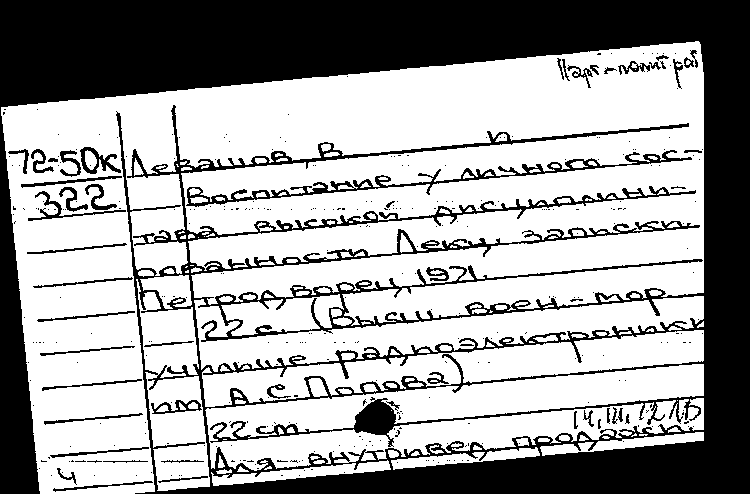 Парт-полит раб
72-50к Левашов, В п
322 Воспитание у личного сос-
тава высокой дисциплини-
рованности Лекц. записки.
Петродворец, 1971.
22 с. (Высш. воен.-мор.
училище радиоэлектроники
им А.С.Попова).
22 см. 14.III.72
Ч Для внутривед продажи.